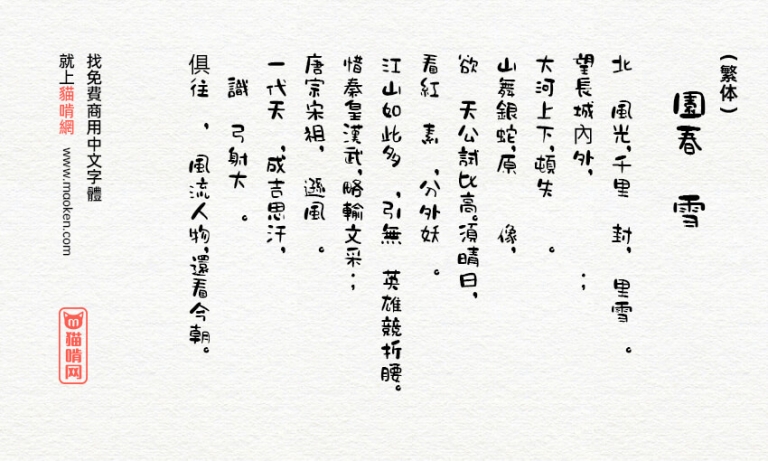 (繁体)
園春 雪
北 風光,千里 封, 里雪 。
望長城內外, ;
大河上下,頓失 。
山舞銀蛇,原 像,
欲 天公試比高。須晴日,
看紅 素 ,分外妖 。
江山如此多 ,引無 英雄競折腰。
惜秦皇漢武,略輸文采;
唐宗宋祖, 遜風 。
一代天 ,成吉思汗,
識 弓射大 。
俱往 , 風流人物,還看今朝。
找免費商用中文字體
就上貓啃網 www.mooken.com
貓啃网